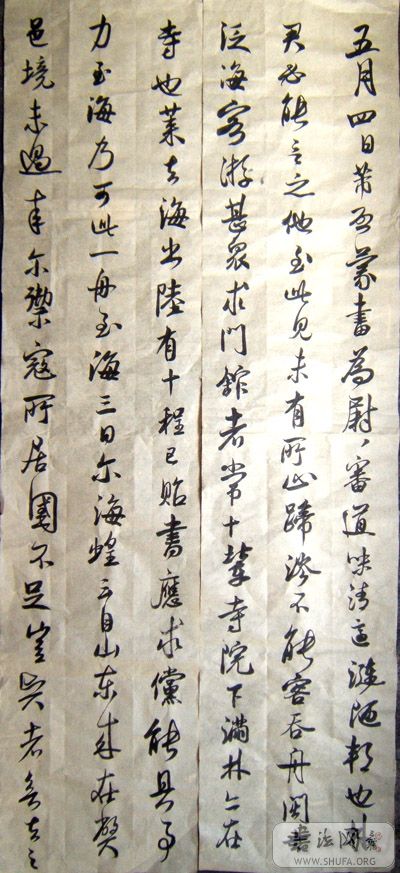 五月四日芾啓蒙書為尉、審道味清適漣陋邦也林
君必能言之他至此見未有所止蹄涔不能容吞舟閩
泛海客游甚衆求門館者常十輩寺院下滿林亦在
寺也萊去海出陸有十程已貽書應求儻能具事
力至海乃可此一舟至海三日尔海蝗云自山東来在弊
邑境未過来尔禦寇所居國不足豈賢者欲去之
書法网
WWW.SHUFA.ORG